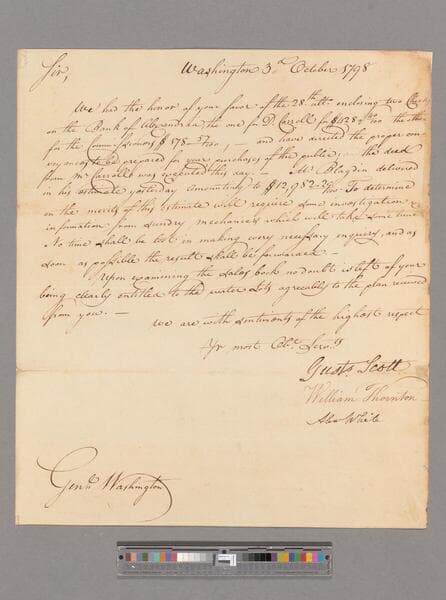 Sir,
Washington 3d October 1798
We had the honor of your favor of the 28th ulto enclosing two Checks
on the Bank of Alexandria the one for D. Carroll for $428 the other
for the Commissioners $178 and have directed the proper con-
veyances to be prepared for your purchases of the public, — the deed
from Mr Carroll was executed this day. — Mr Blagdin delivered
in his estimate yesterday amounting to $12,982 To determine
on the merits of this estimate will require some investigation &
information from sundry mechanics which will take some time
No time shall be lost in making every necessary enquiry, and as
soon as possible the result shall be forwarded —
Upon examining the Sales book no doubt is left of your
being clearly entitled to the water Lots agreeably to the plan received
from you. —
We are with sentiments of the highest respect
Yr most Obt Servts
Gusts Scott
William Thornton
Alex White
Genl Washington